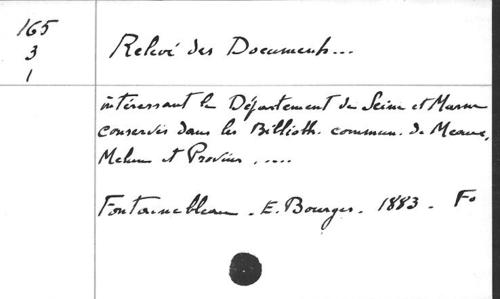 165
3
1
Relevé des Documents...
intéressant le Département de Seine et Marne
conservés dans les Biblioth. commun. de Meaux,
Melun et Provins .....
Fontainebleau - E. Bourges - 1883 - Fo